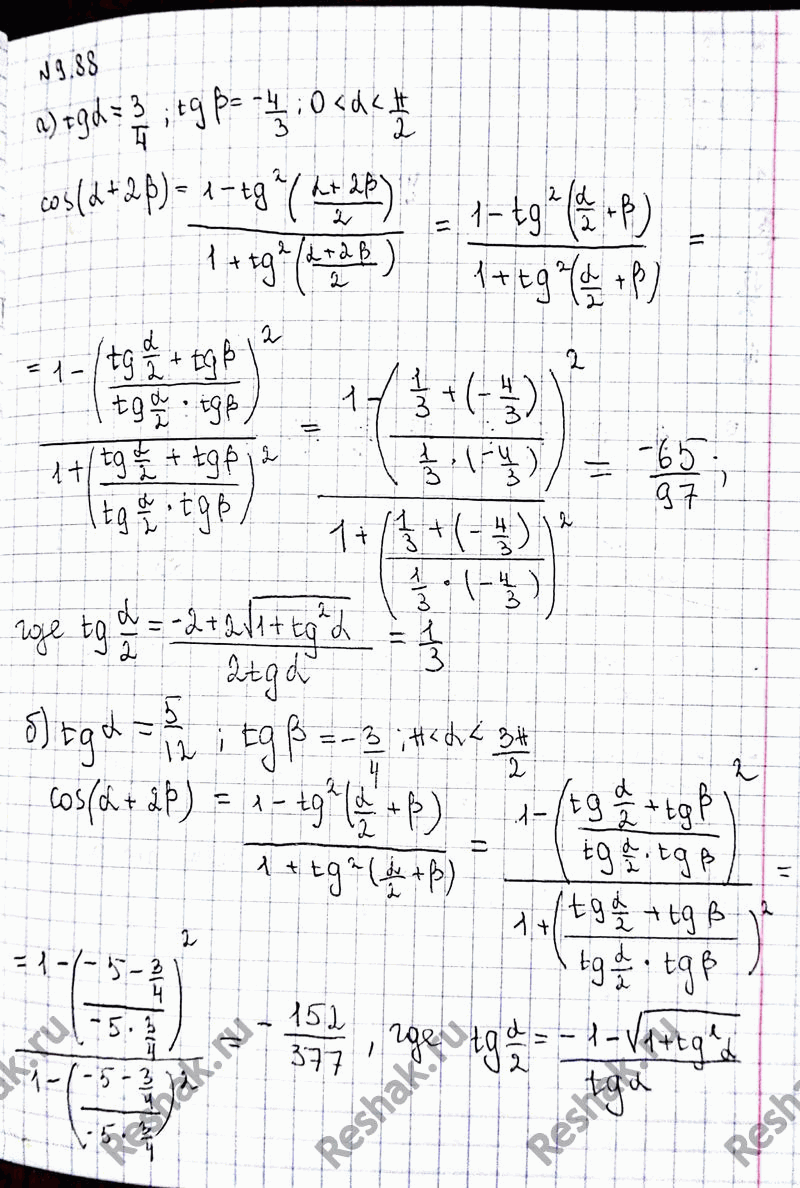 №9.88
а) tgα = 3/4 ; tgβ = -4/3 ; 0 < α < π/2
cos(α+2β) = (1 - tg²((α+2β)/2)) / (1 + tg²((α+2β)/2)) = (1 - tg²(α/2 + β)) / (1 + tg²(α/2 + β)) =
= (1 - ((tg α/2 + tgβ) / (tg α/2 · tgβ))²) / (1 + ((tg α/2 + tgβ) / (tg α/2 · tgβ))²) = (1 - ((1/3 + (-4/3)) / (1/3 · (-4/3)))²) / (1 + ((1/3 + (-4/3)) / (1/3 · (-4/3)))²) = -65/97 ;
где tg α/2 = (-2+2√(1+tg²α)) / (2tgα) = 1/3
б) tgα = 5/12 ; tgβ = -3/4 ; π < α < 3π/2
cos(α+2β) = (1 - tg²(α/2 + β)) / (1 + tg²(α/2 + β)) = (1 - ((tg α/2 + tgβ) / (tg α/2 · tgβ))²) / (1 + ((tg α/2 + tgβ) / (tg α/2 · tgβ))²) =
= (1 - ((-5 - 3/4) / (-5 · 3/4))²) / (1 - ((-5 - 3/4) / (-5 · 3/4))²) = - 152/377 , где tg α/2 = (-1 - √(1+tg²α)) / tgα
Reshak.ru
Reshak.ru
Reshak.ru
Reshak.ru